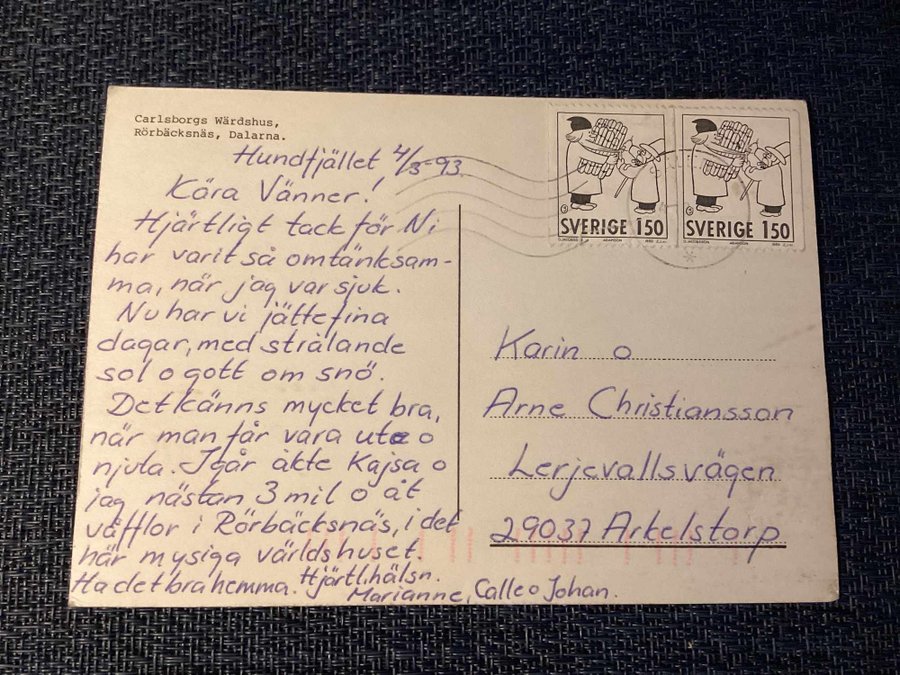 Carlsborgs Wärdshus,
Rörbäcksnäs, Dalarna.
Hundfjället 4/3-93
Kära Vänner!
Hjärtligt tack för Ni
har varit så omtänksam-
ma, när jag var sjuk.
Nu har vi jättefina
dagar, med strålande
sol o gott om snö.
Det känns mycket bra,
när man får vara ute o
njuta. Igår åkte Kajsa o
jag nästan 3 mil o åt
våfflor i Rörbäcksnäs, i det
här mysiga världshuset.
Ha det bra hemma. Hjärtl. hälsn.
Marianne, Calle o Johan.
SVERIGE 150
SVERIGE 150
Karin o
Arne Christiansson
Lerjevallsvägen
29037 Arkelstorp